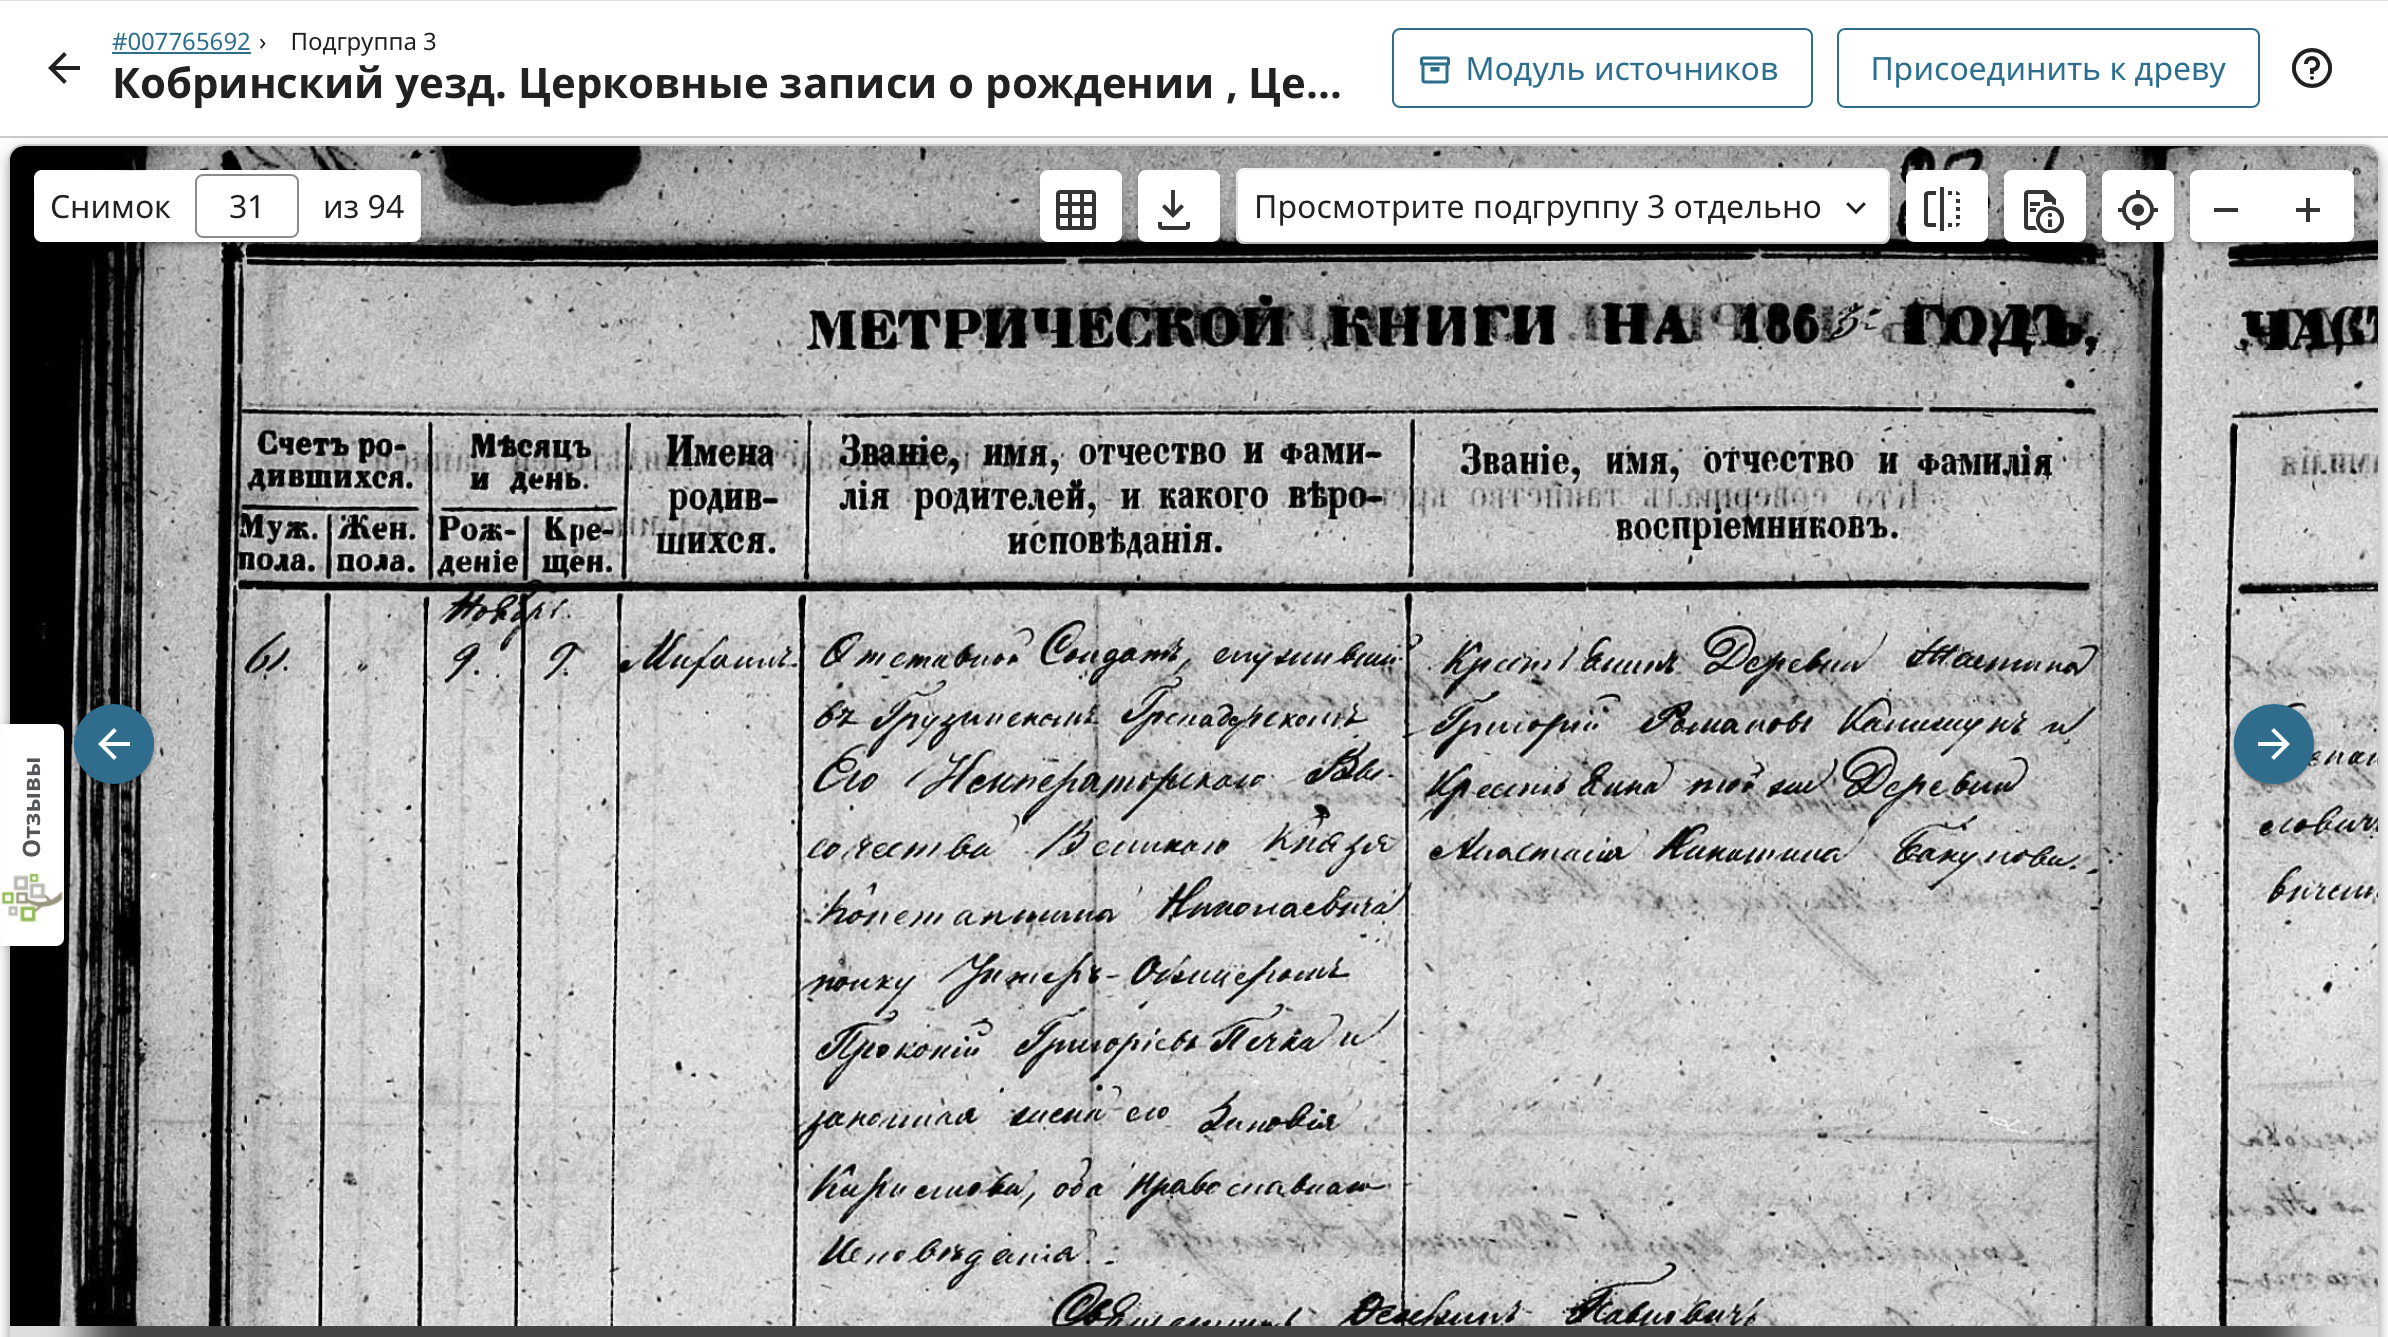 #007765692 › Подгруппа 3
Кобринский уезд. Церковные записи о рождении , Це...
Модуль источников
Присоединить к древу
Снимок 31 из 94
Просмотрите подгруппу 3 отдельно
Отзывы
МЕТРИЧЕСКОЙ КНИГИ НА 186 ГОДЪ,
ЧАС
Счетъ ро-
дившихся.
Муж. пола.
Жен. пола.
Мѣсяцъ
и день.
Рож-
деніе
Кре-
щен.
Имена
родив-
шихся.
Званіе, имя, отчество и фами-
лія родителей, и какого вѣро-
исповѣданія.
Званіе, имя, отчество и фамилія
воспріемниковъ.
Ноябрь.
61. " 9. 9. Михаилъ.
Отставной Солдатъ, служившій
въ Грузинскомъ Гренадерскомъ
Его Императорскаго Вы-
сочества Великаго Князя
Константина Николаевича
полку Унтеръ-Офицеромъ
Прокопій Григорьевъ Печка и
законная жена его Зиновія
Кирилова, оба Православнаго
Исповѣданія.
Крестьянинъ Деревни
Григорій Романовъ и
Крестьянка той же Деревни
Анастасія
Священникъ Павловичъ